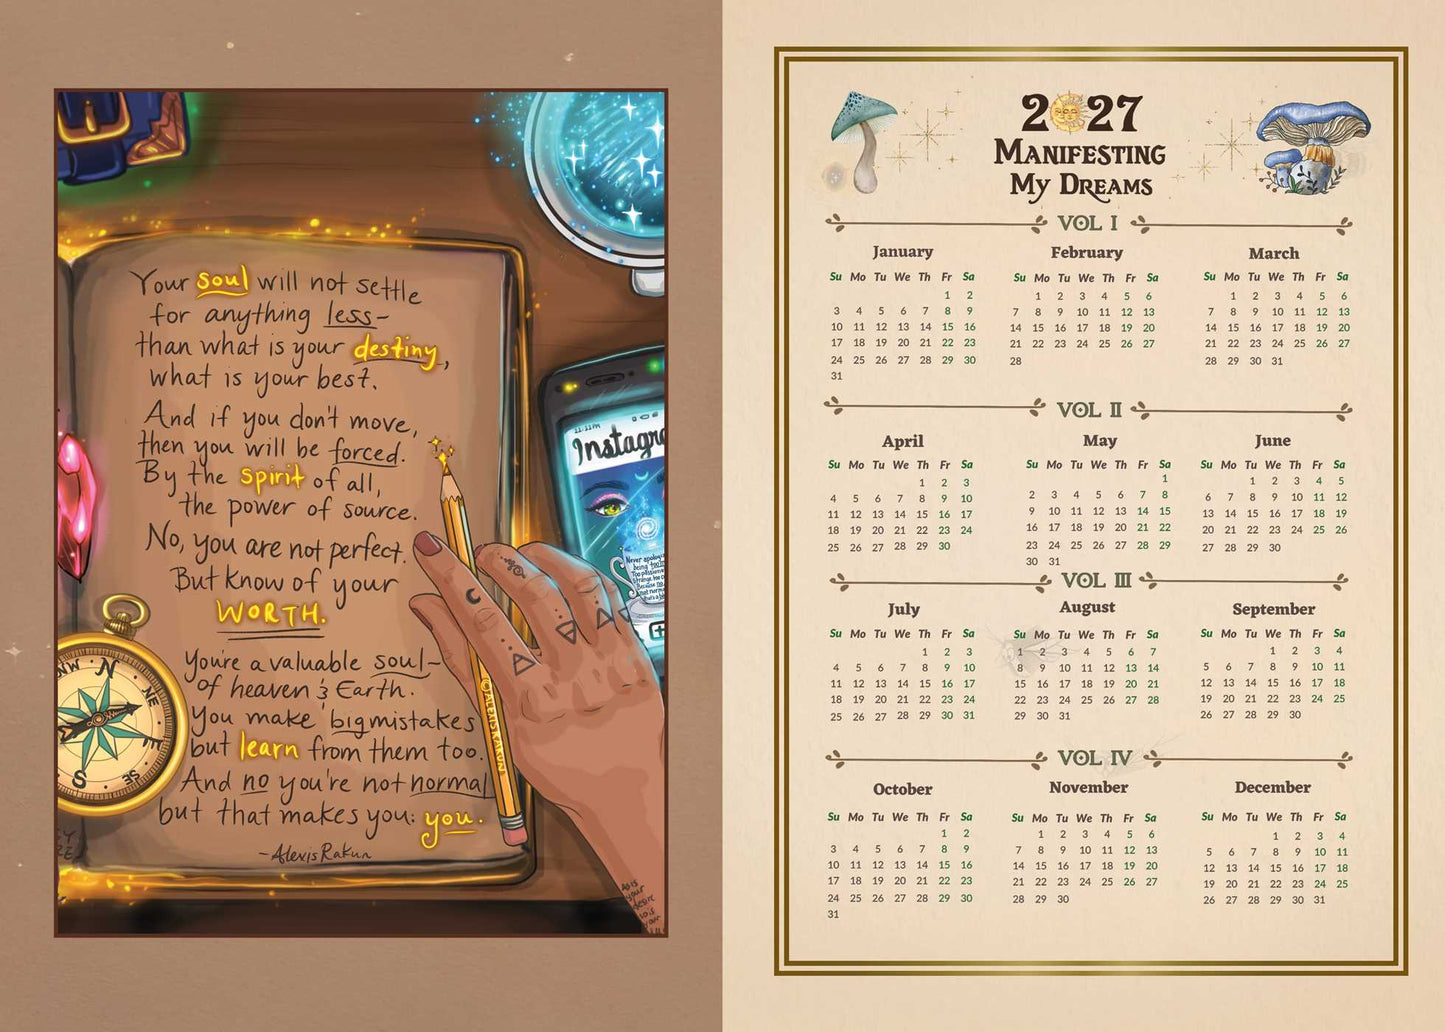 Your soul will not settle
for anything less-
than what is your destiny,
what is your best.
And if you don't move,
then you will be forced.
By the spirit of all,
the power of source.
No, you are not perfect.
But know of your
WORTH.
You're a valuable soul-
of heaven & Earth.
You make big mistakes
but learn from them too.
And no you're not normal
but that makes you: you.
-Alexis Rakun
N
NE
E
SE
S
NW
11:11PM
Instagra
Never apolog
being too
Too passiona
©ALEXIS RAKUN
As is
your
desire
so is
your
2027
MANIFESTING
MY DREAMS
VOL I
January February March
Su Mo Tu We Th Fr Sa Su Mo Tu We Th Fr Sa Su Mo Tu We Th Fr Sa
1 2 1 2 3 4 5 6 1 2 3 4 5 6
3 4 5 6 7 8 9 7 8 9 10 11 12 13 7 8 9 10 11 12 13
10 11 12 13 14 15 16 14 15 16 17 18 19 20 14 15 16 17 18 19 20
17 18 19 20 21 22 23 21 22 23 24 25 26 27 21 22 23 24 25 26 27
24 25 26 27 28 29 30 28 28 29 30 31
31
VOL II
April May June
Su Mo Tu We Th Fr Sa Su Mo Tu We Th Fr Sa Su Mo Tu We Th Fr Sa
1 2 3 1 1 2 3 4 5
4 5 6 7 8 9 10 2 3 4 5 6 7 8 6 7 8 9 10 11 12
11 12 13 14 15 16 17 9 10 11 12 13 14 15 13 14 15 16 17 18 19
18 19 20 21 22 23 24 16 17 18 19 20 21 22 20 21 22 23 24 25 26
25 26 27 28 29 30 23 24 25 26 27 28 29 27 28 29 30
30 31
VOL III
July August September
Su Mo Tu We Th Fr Sa Su Mo Tu We Th Fr Sa Su Mo Tu We Th Fr Sa
1 2 3 1 2 3 4 5 6 7 1 2 3 4
4 5 6 7 8 9 10 8 9 10 11 12 13 14 5 6 7 8 9 10 11
11 12 13 14 15 16 17 15 16 17 18 19 20 21 12 13 14 15 16 17 18
18 19 20 21 22 23 24 22 23 24 25 26 27 28 19 20 21 22 23 24 25
25 26 27 28 29 30 31 29 30 31 26 27 28 29 30
VOL IV
October November December
Su Mo Tu We Th Fr Sa Su Mo Tu We Th Fr Sa Su Mo Tu We Th Fr Sa
1 2 1 2 3 4 5 6 1 2 3 4
3 4 5 6 7 8 9 7 8 9 10 11 12 13 5 6 7 8 9 10 11
10 11 12 13 14 15 16 14 15 16 17 18 19 20 12 13 14 15 16 17 18
17 18 19 20 21 22 23 21 22 23 24 25 26 27 19 20 21 22 23 24 25
24 25 26 27 28 29 30 28 29 30 26 27 28 29 30 31
31